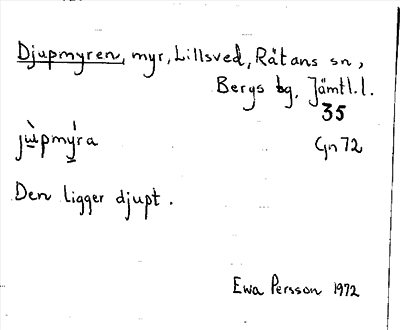 Djupmyren, myr, Lillsved, Råtans sn,
Bergs bg, Jämtl.l.
35
jùpmýra
Gn 72
Den ligger djupt.
Ewa Persson 1972